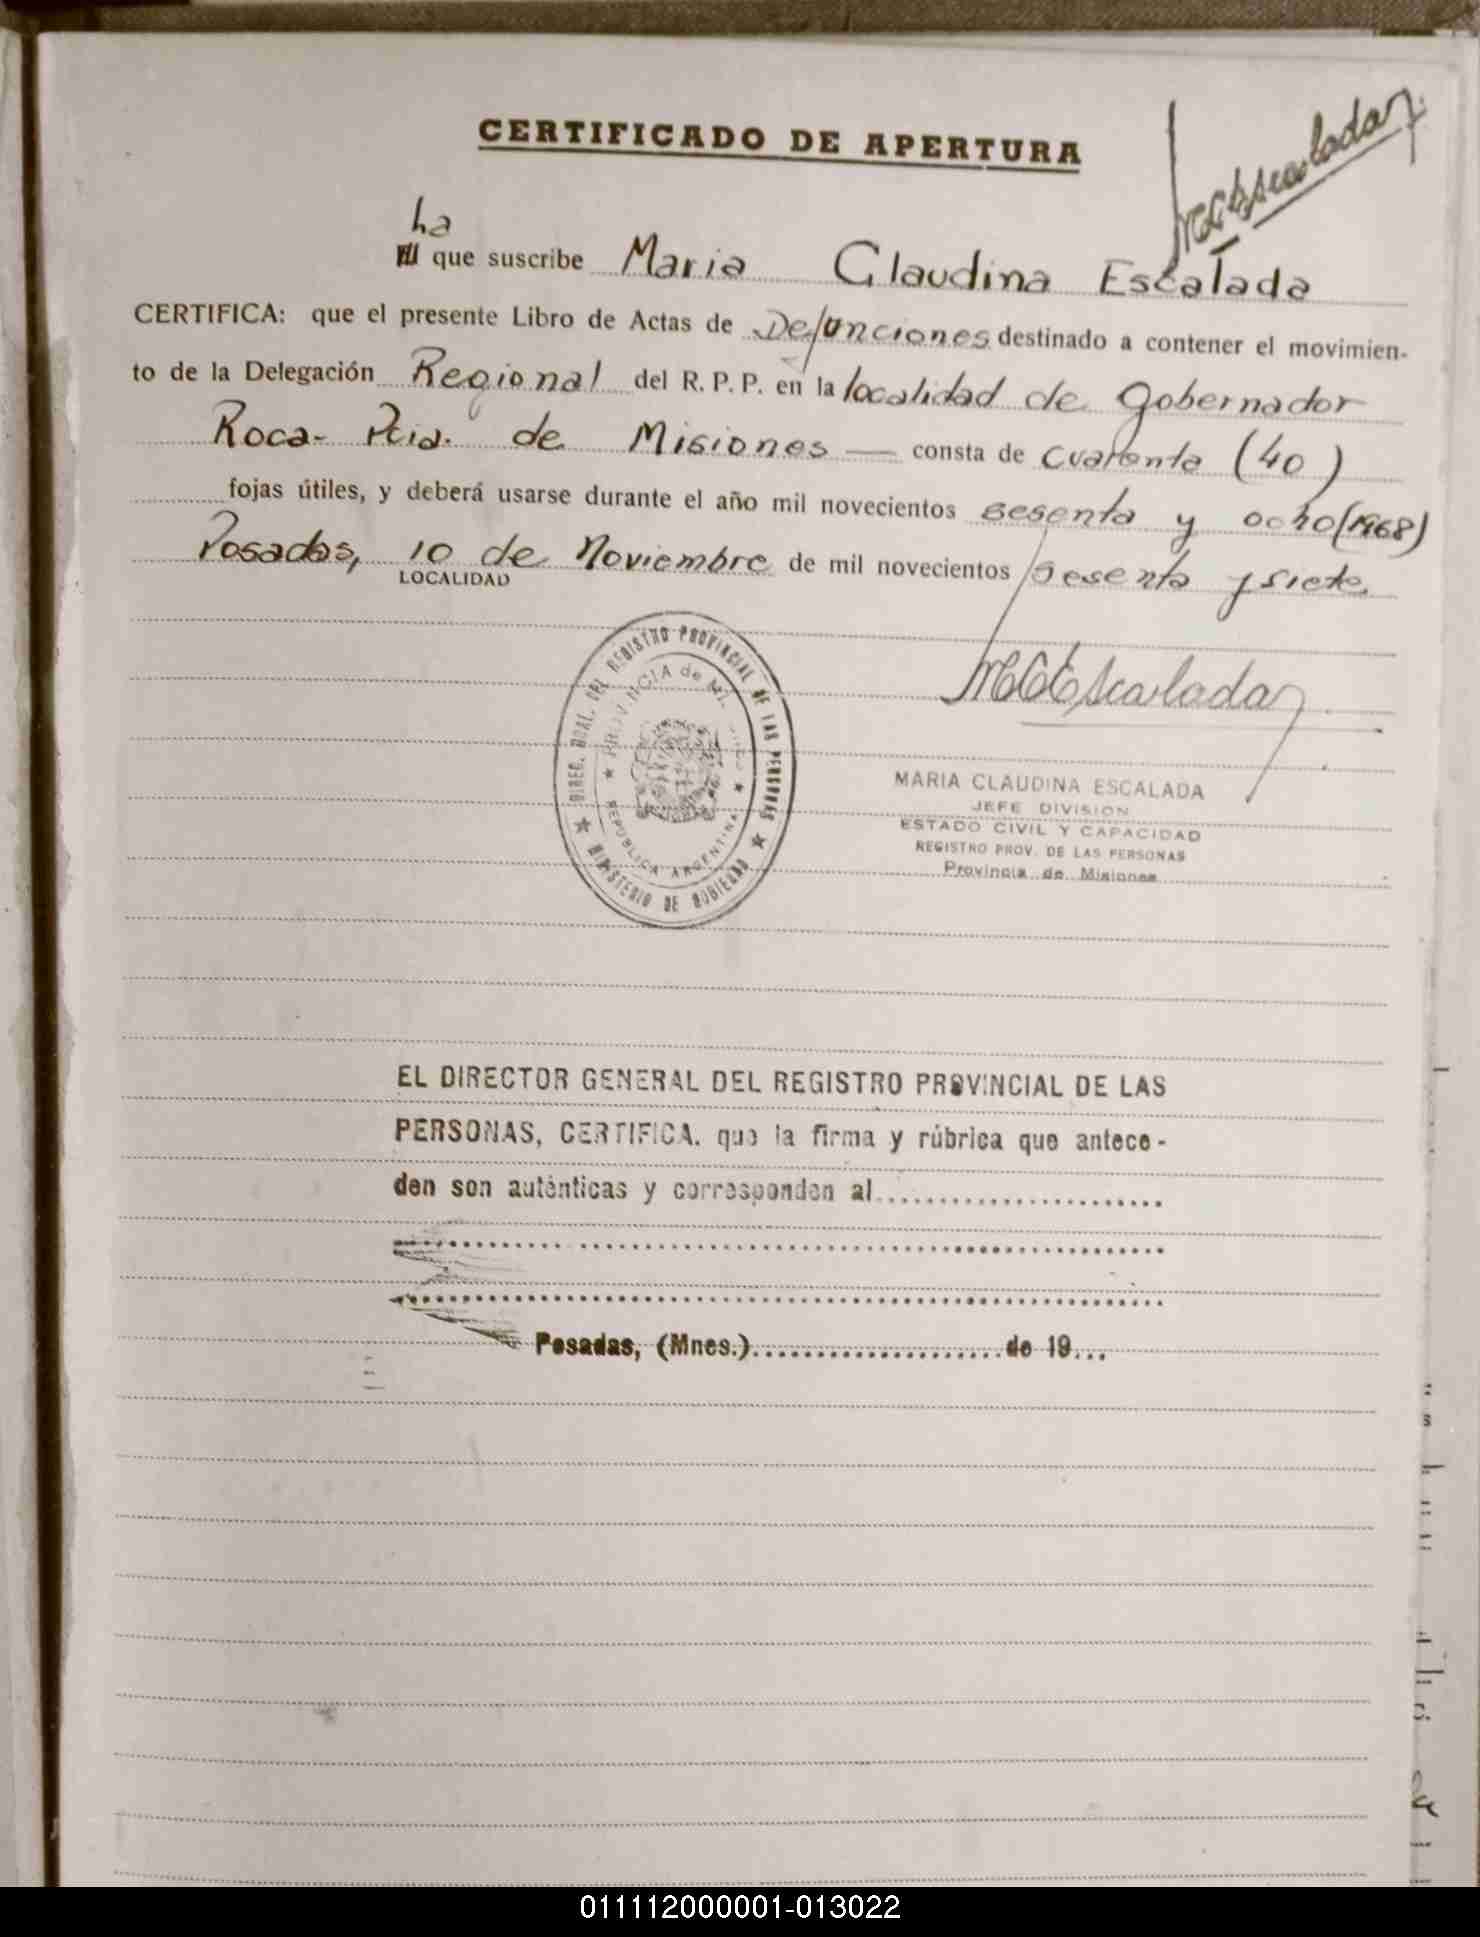 CERTIFICADO DE APERTURA
MCEscalada
La
El que suscribe Maria Claudina Escalada
CERTIFICA: que el presente Libro de Actas de Defunciones destinado a contener el movimien-
to de la Delegación Regional del R. P. P. en la localidad de Gobernador
Roca- Pcia. de Misiones — consta de cuarenta (40)
fojas útiles, y deberá usarse durante el año mil novecientos sesenta y ocho (1968)
Posadas, 10 de Noviembre de mil novecientos sesenta y siete
LOCALIDAD
DIREC. GRAL. DEL REGISTRO PROVINCIAL DE LAS PERSONAS
MINISTERIO DE GOBIERNO
PROVINCIA de
REPUBLICA ARGENTINA
MCEscalada
MARIA CLAUDINA ESCALADA
JEFE DIVISION
ESTADO CIVIL Y CAPACIDAD
REGISTRO PROV. DE LAS PERSONAS
Provincia de Misiones
EL DIRECTOR GENERAL DEL REGISTRO PROVINCIAL DE LAS
PERSONAS, CERTIFICA, que la firma y rúbrica que antece-
den son auténticas y corresponden al......................
Posadas, (Mnes.)....................de 19...
011112000001-013022